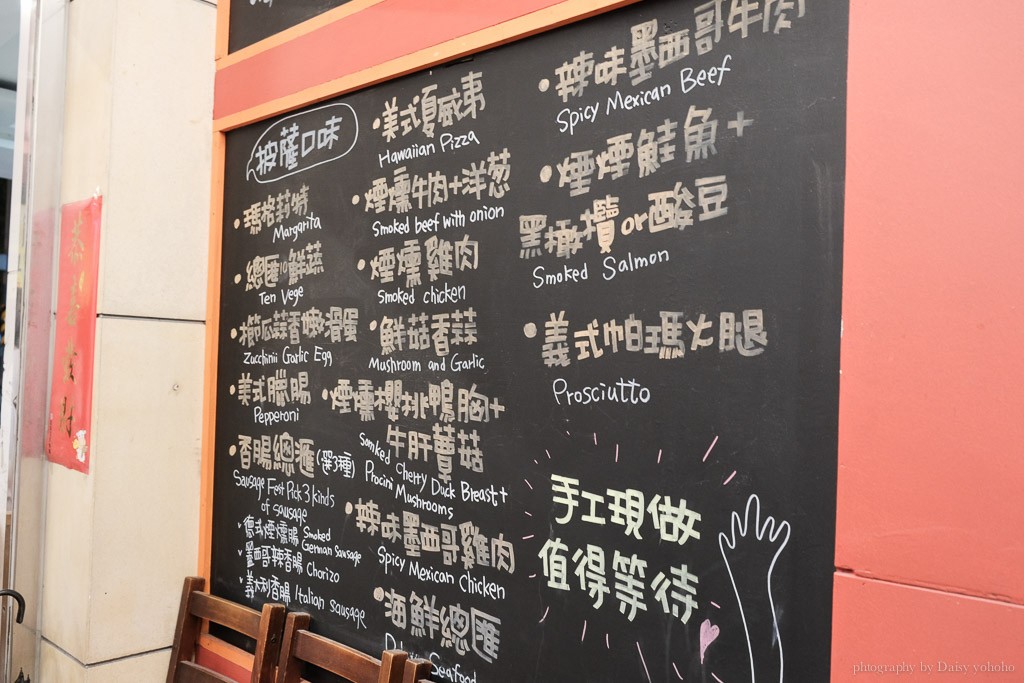 披薩口味
瑪格莉特
Margarita
總匯10鮮蔬
Ten Vege
櫛瓜蒜香嫩滑蛋
Zucchinii Garlic Egg
美式臘腸
Pepperoni
香腸總滙(選3種)
Sausage Fest Pick 3 kinds
of sausage
德式煙燻腸 Smoked
German Sausage
墨西哥辣香腸 Chorizo
義大利香腸 Italian Sausage
美式夏威夷
Hawaiian Pizza
煙燻牛肉+洋葱
Smoked beef with onion
煙燻雞肉
Smoked chicken
鮮菇香蒜
Mushroom and Garlic
煙燻櫻桃鴨胸+
牛肝蕈菇
Somked Cherry Duck Breast+
Procini Mushrooms
辣味墨西哥雞肉
Spicy Mexican Chicken
海鮮總匯
Seafood
辣味墨西哥牛肉
Spicy Mexican Beef
煙煙鮭魚+
黑橄欖or酸豆
Smoked Salmon
義式帕瑪火腿
Prosciutto
手工現做
值得等待
photography by Daisy yohoho